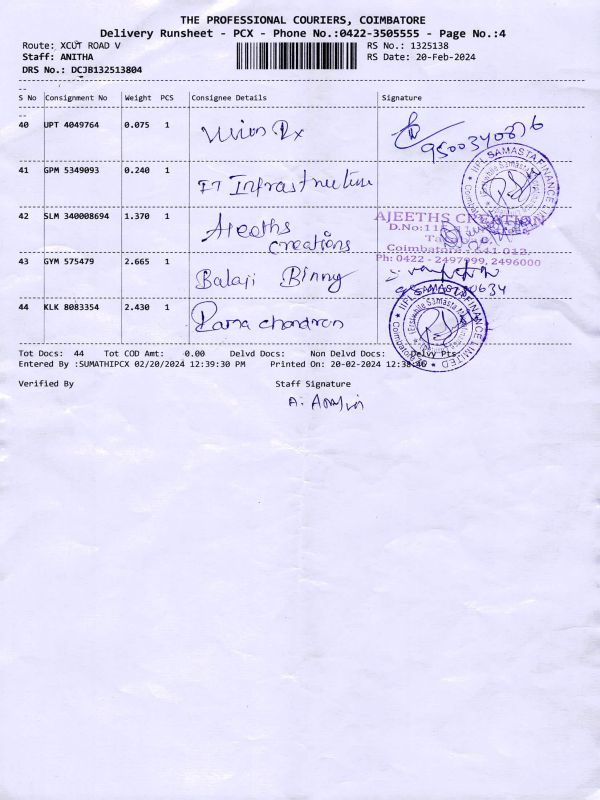 THE PROFESSIONAL COURIERS, COIMBATORE
Delivery Runsheet - PCX - Phone No.:0422-3505555 - Page No.:4
Route: XCUT ROAD V
RS No.: 1325138
Staff: ANITHA
RS Date: 20-Feb-2024
DRS No.: DCJB132513804
S No Consignment No Weight PCS Consignee Details Signature
40 UPT 4049764 0.075 1
9500340876
41 GPM 5349093 0.240 1 IT Infrastructure
IIFL SAMASTA FINANCE LIMITED
42 SLM 340008694 1.370 1 Ajeeths creations
AJEETHS CREATION
D.No:11
Coimbatore - 641 012.
Ph: 0422 - 2497999, 2496000
43 GYM 575479 2.665 1 Balaji Binny
44 KLK 8083354 2.430 1 Rama chandran
IIFL SAMASTA FINANCE LIMITED
Tot Docs: 44 Tot COD Amt: 0.00 Delvd Docs: Non Delvd Docs: Delvy Pts:
Entered By :SUMATHIPCX 02/20/2024 12:39:30 PM Printed On: 20-02-2024
Verified By Staff Signature